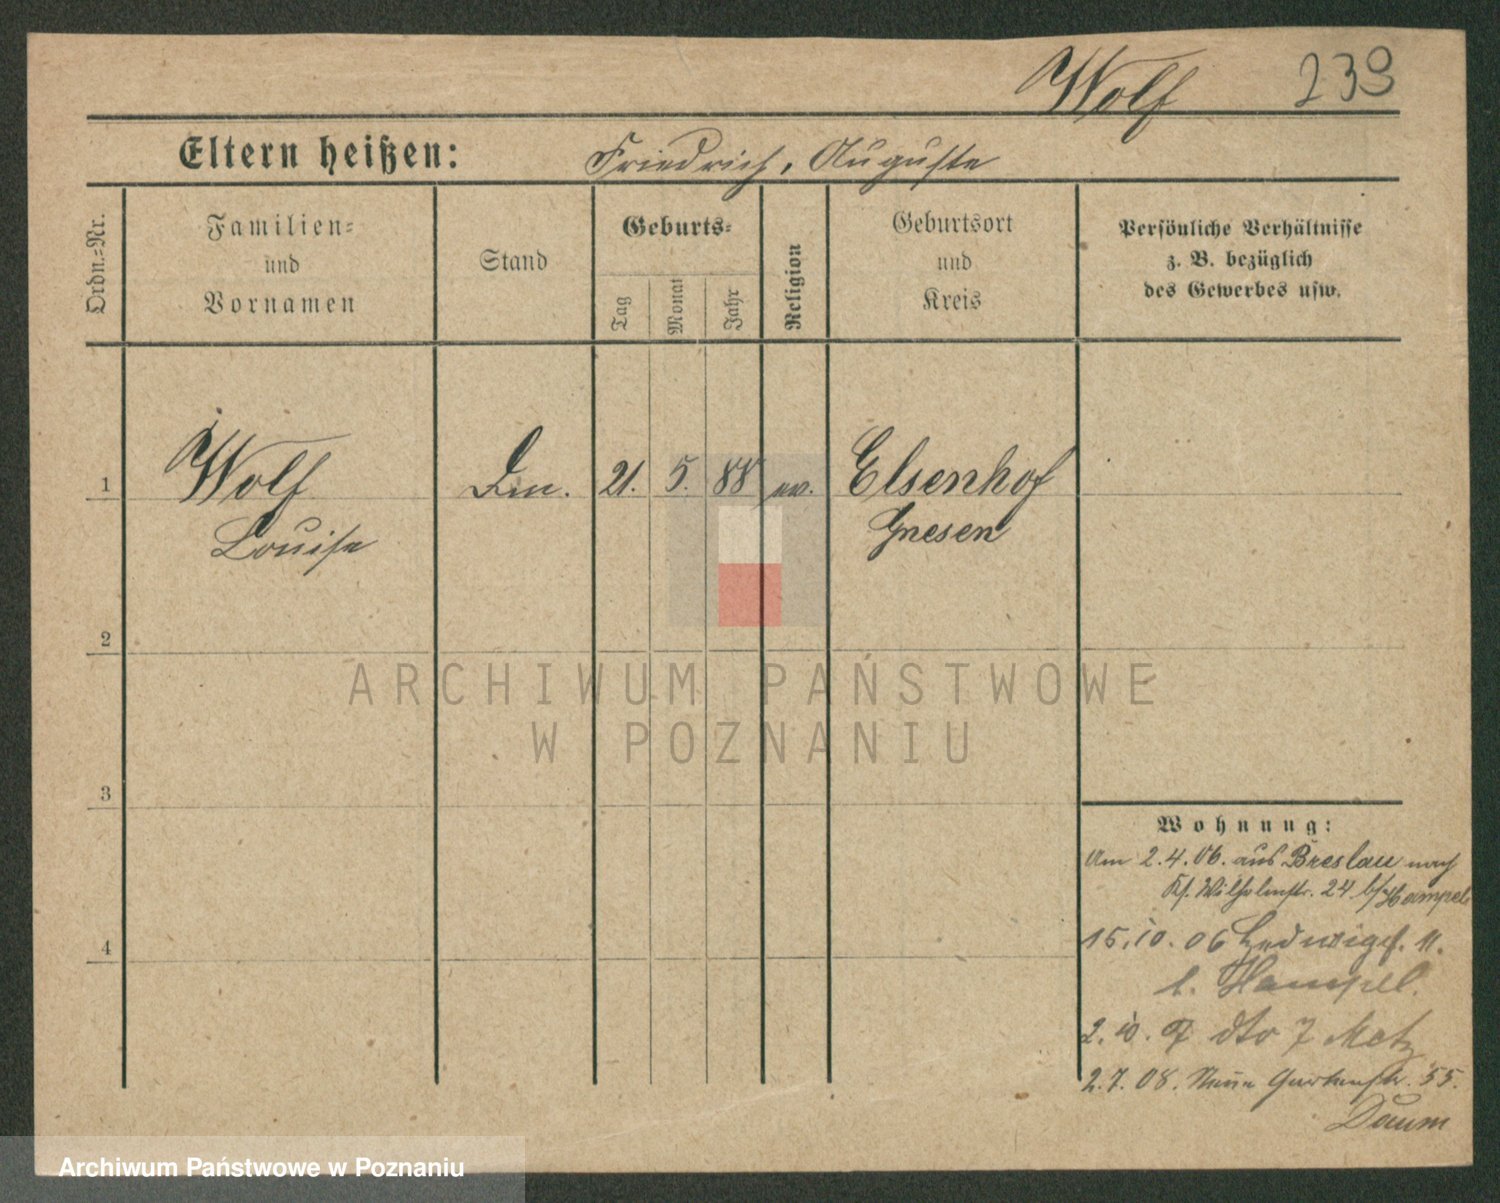 Wolf 239
Eltern heißen: Friedrich, Auguste
Ordn.-Nr.
Familien-
und
Vornamen
Stand
Geburts-
Tag
Monat
Jahr
Religion
Geburtsort
und
Kreis
Persönliche Verhältnisse
z. B. bezüglich
des Gewerbes usw.
1 Wolf 21. 5. 88 ev. Elsenhof
Louise Gnesen
2
3
4
ARCHIWUM PAŃSTWOWE
W POZNANIU
Wohnung:
Am 2.4.06. aus Breslau nach
Wilhelmstr. 24 b/Hampel
15.10.06 11.
b. Hampel.
dto 7 Metz
2.7.08. Neue Gartenstr. 55.
Daum
Archiwum Państwowe w Poznaniu